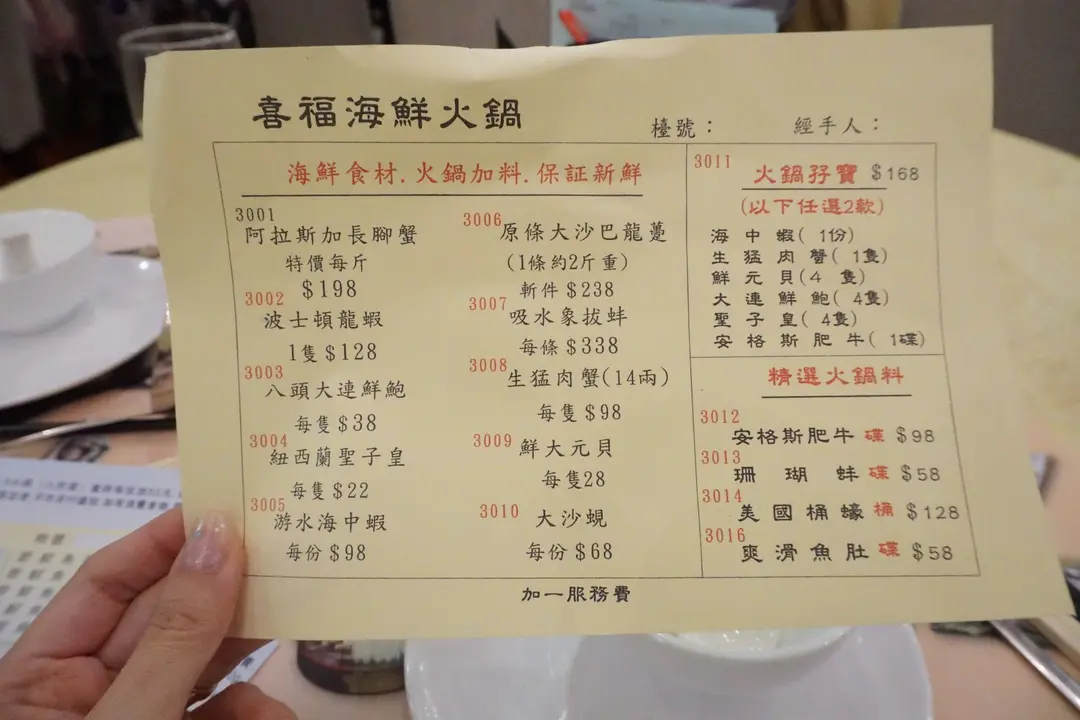 喜福海鮮火鍋
檯號：
經手人：
海鮮食材.火鍋加料.保証新鮮
3001
阿拉斯加長腳蟹
特價每斤
$198
3002
波士頓龍蝦
1隻$128
3003
八頭大連鮮鮑
每隻$38
3004
紐西蘭聖子皇
每隻$22
3005
游水海中蝦
每份$98
3006
原條大沙巴龍躉
(1條約2斤重)
斬件$238
3007
吸水象拔蚌
每條$338
3008
生猛肉蟹(14兩)
每隻$98
3009
鮮大元貝
每隻28
3010
大沙蜆
每份$68
3011
火鍋孖寶 $168
(以下任選2款)
海中蝦(1份)
生猛肉蟹(1隻)
鮮元貝(4隻)
大連鮮鮑(4隻)
聖子皇(4隻)
安格斯肥牛(1碟)
精選火鍋料
3012
安格斯肥牛 碟 $98
3013
珊瑚蚌 碟 $58
3014
美國桶蠔 桶 $128
3016
爽滑魚肚 碟 $58
加一服務費